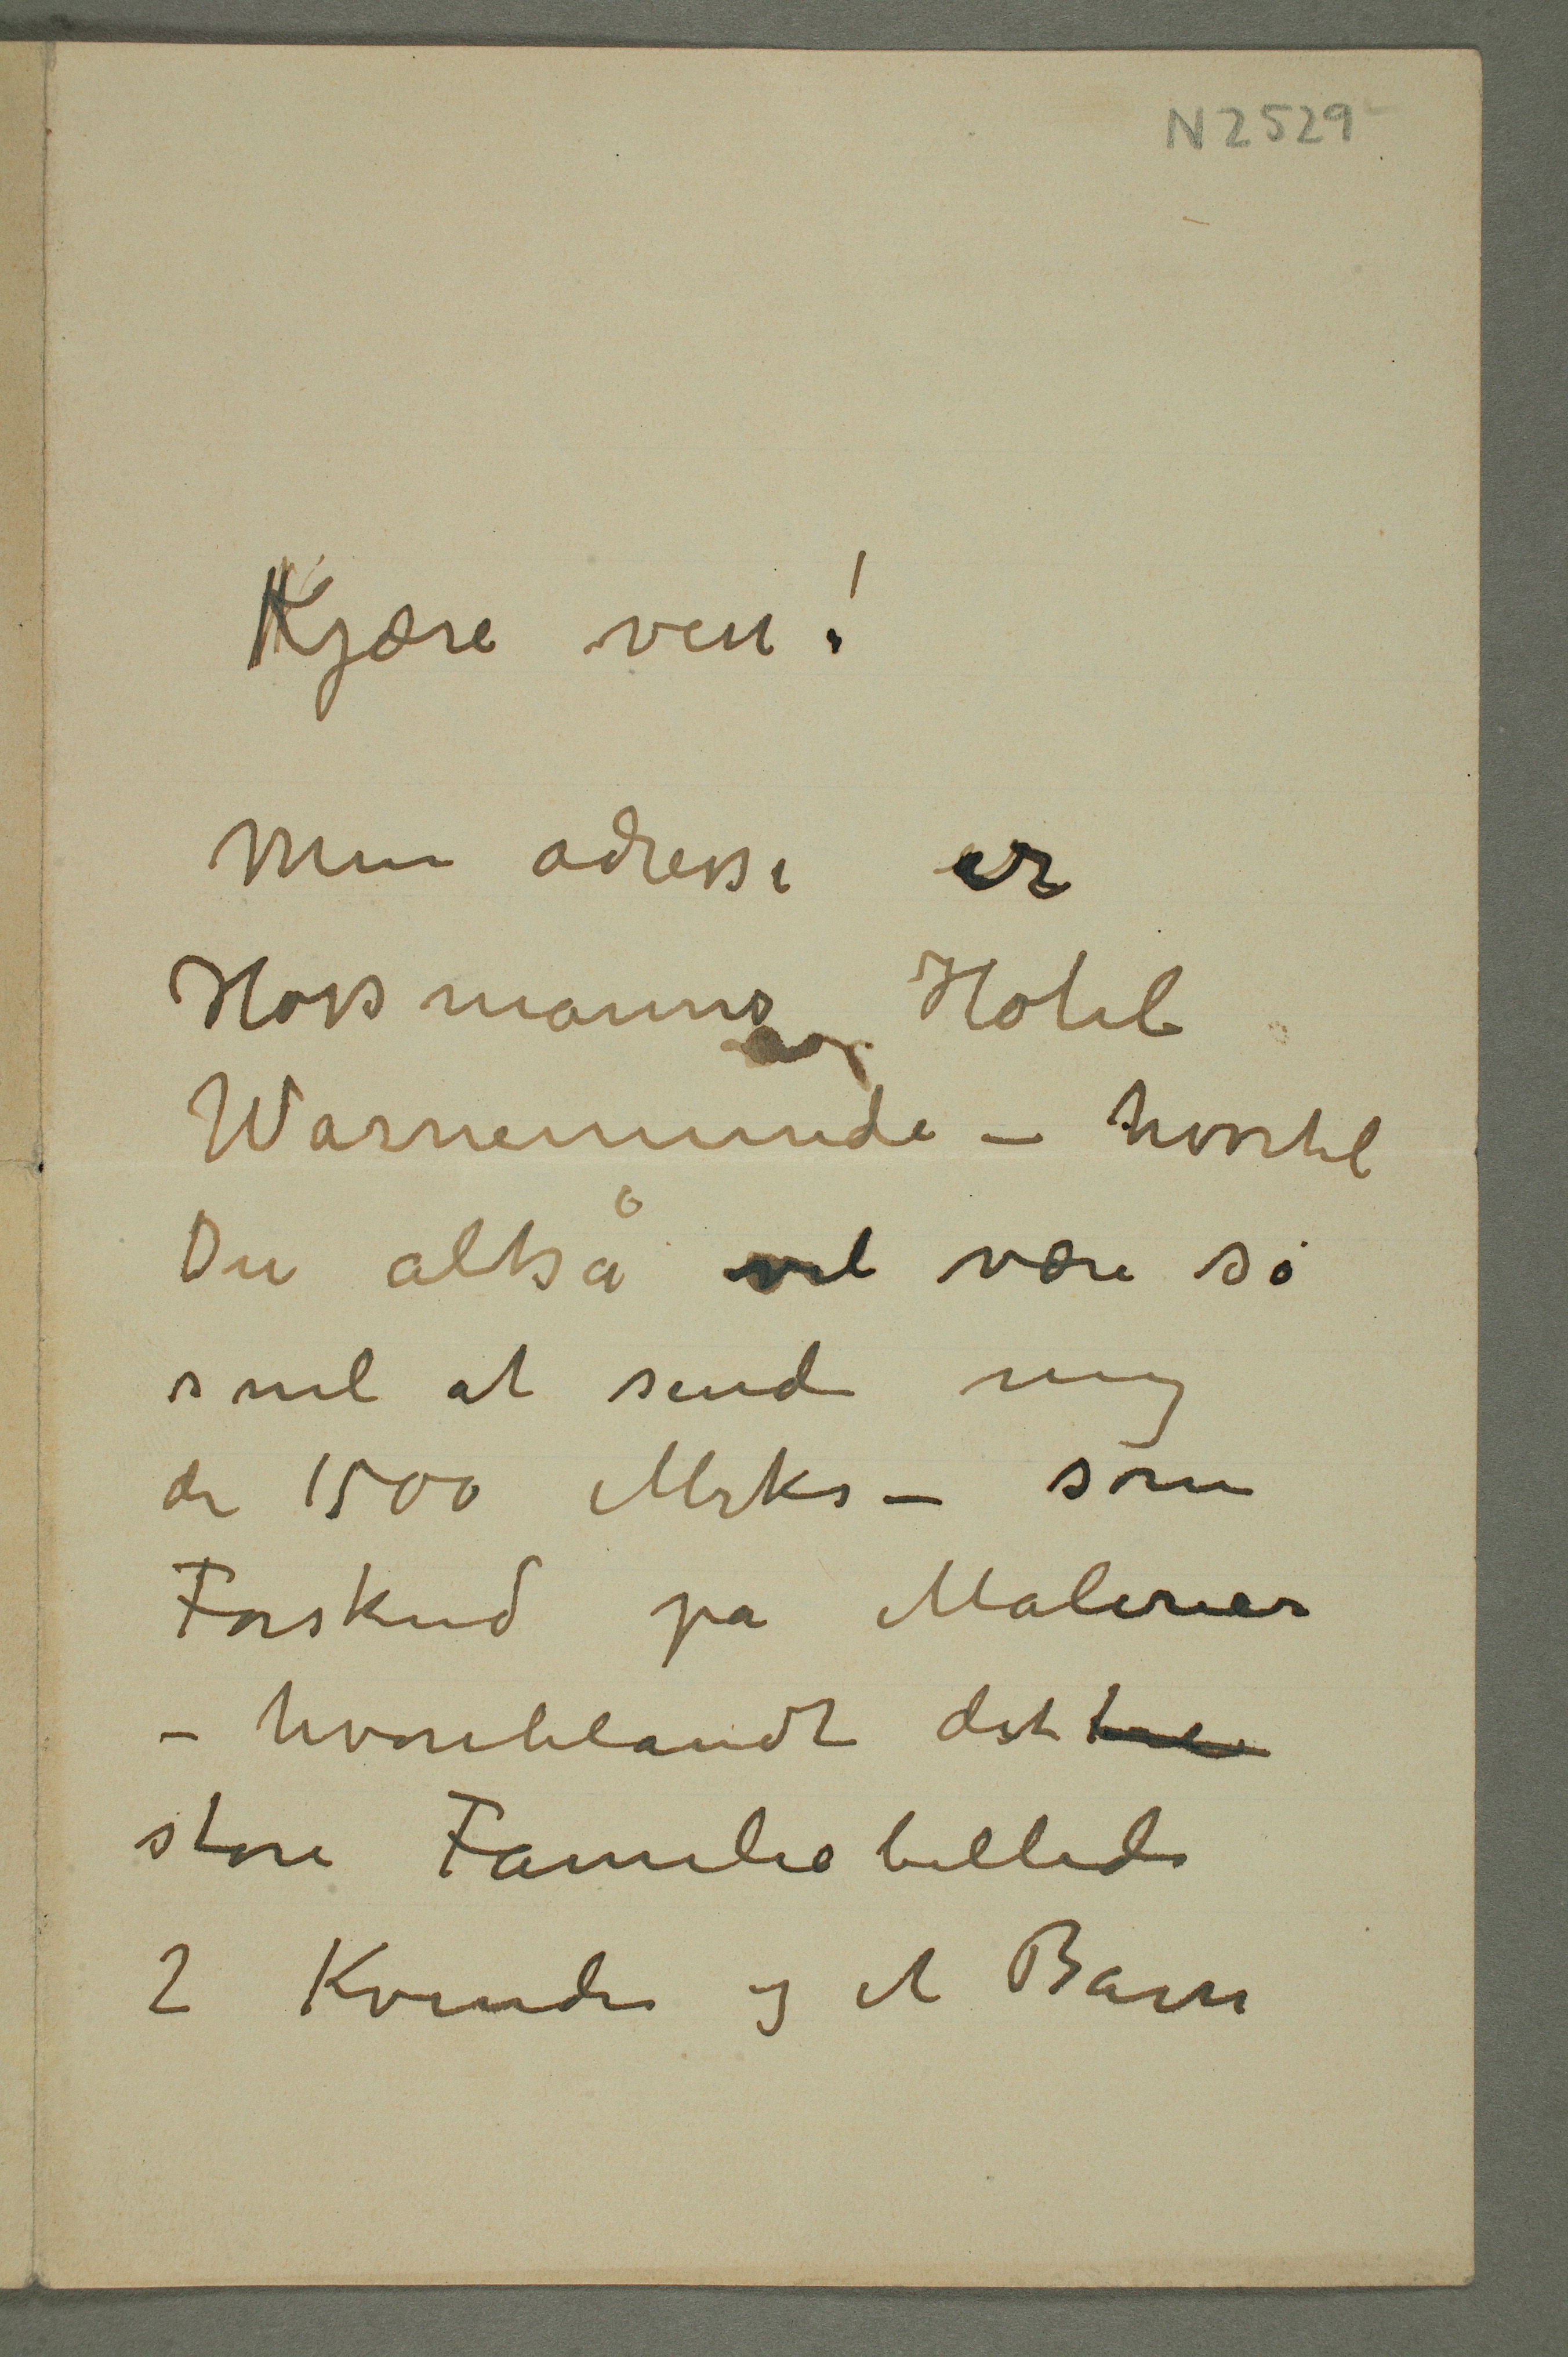 N 2529
Kjære ven!
Min adresse er
Hossmanns Hotel
Warnemunde – hvortil
Du altså vil være så
snil at sende mig
de 1500 Mrks – som
Forskud på Malerier
– hvoriblandt det
store Familiebillede
2 Kvinder og et Barn